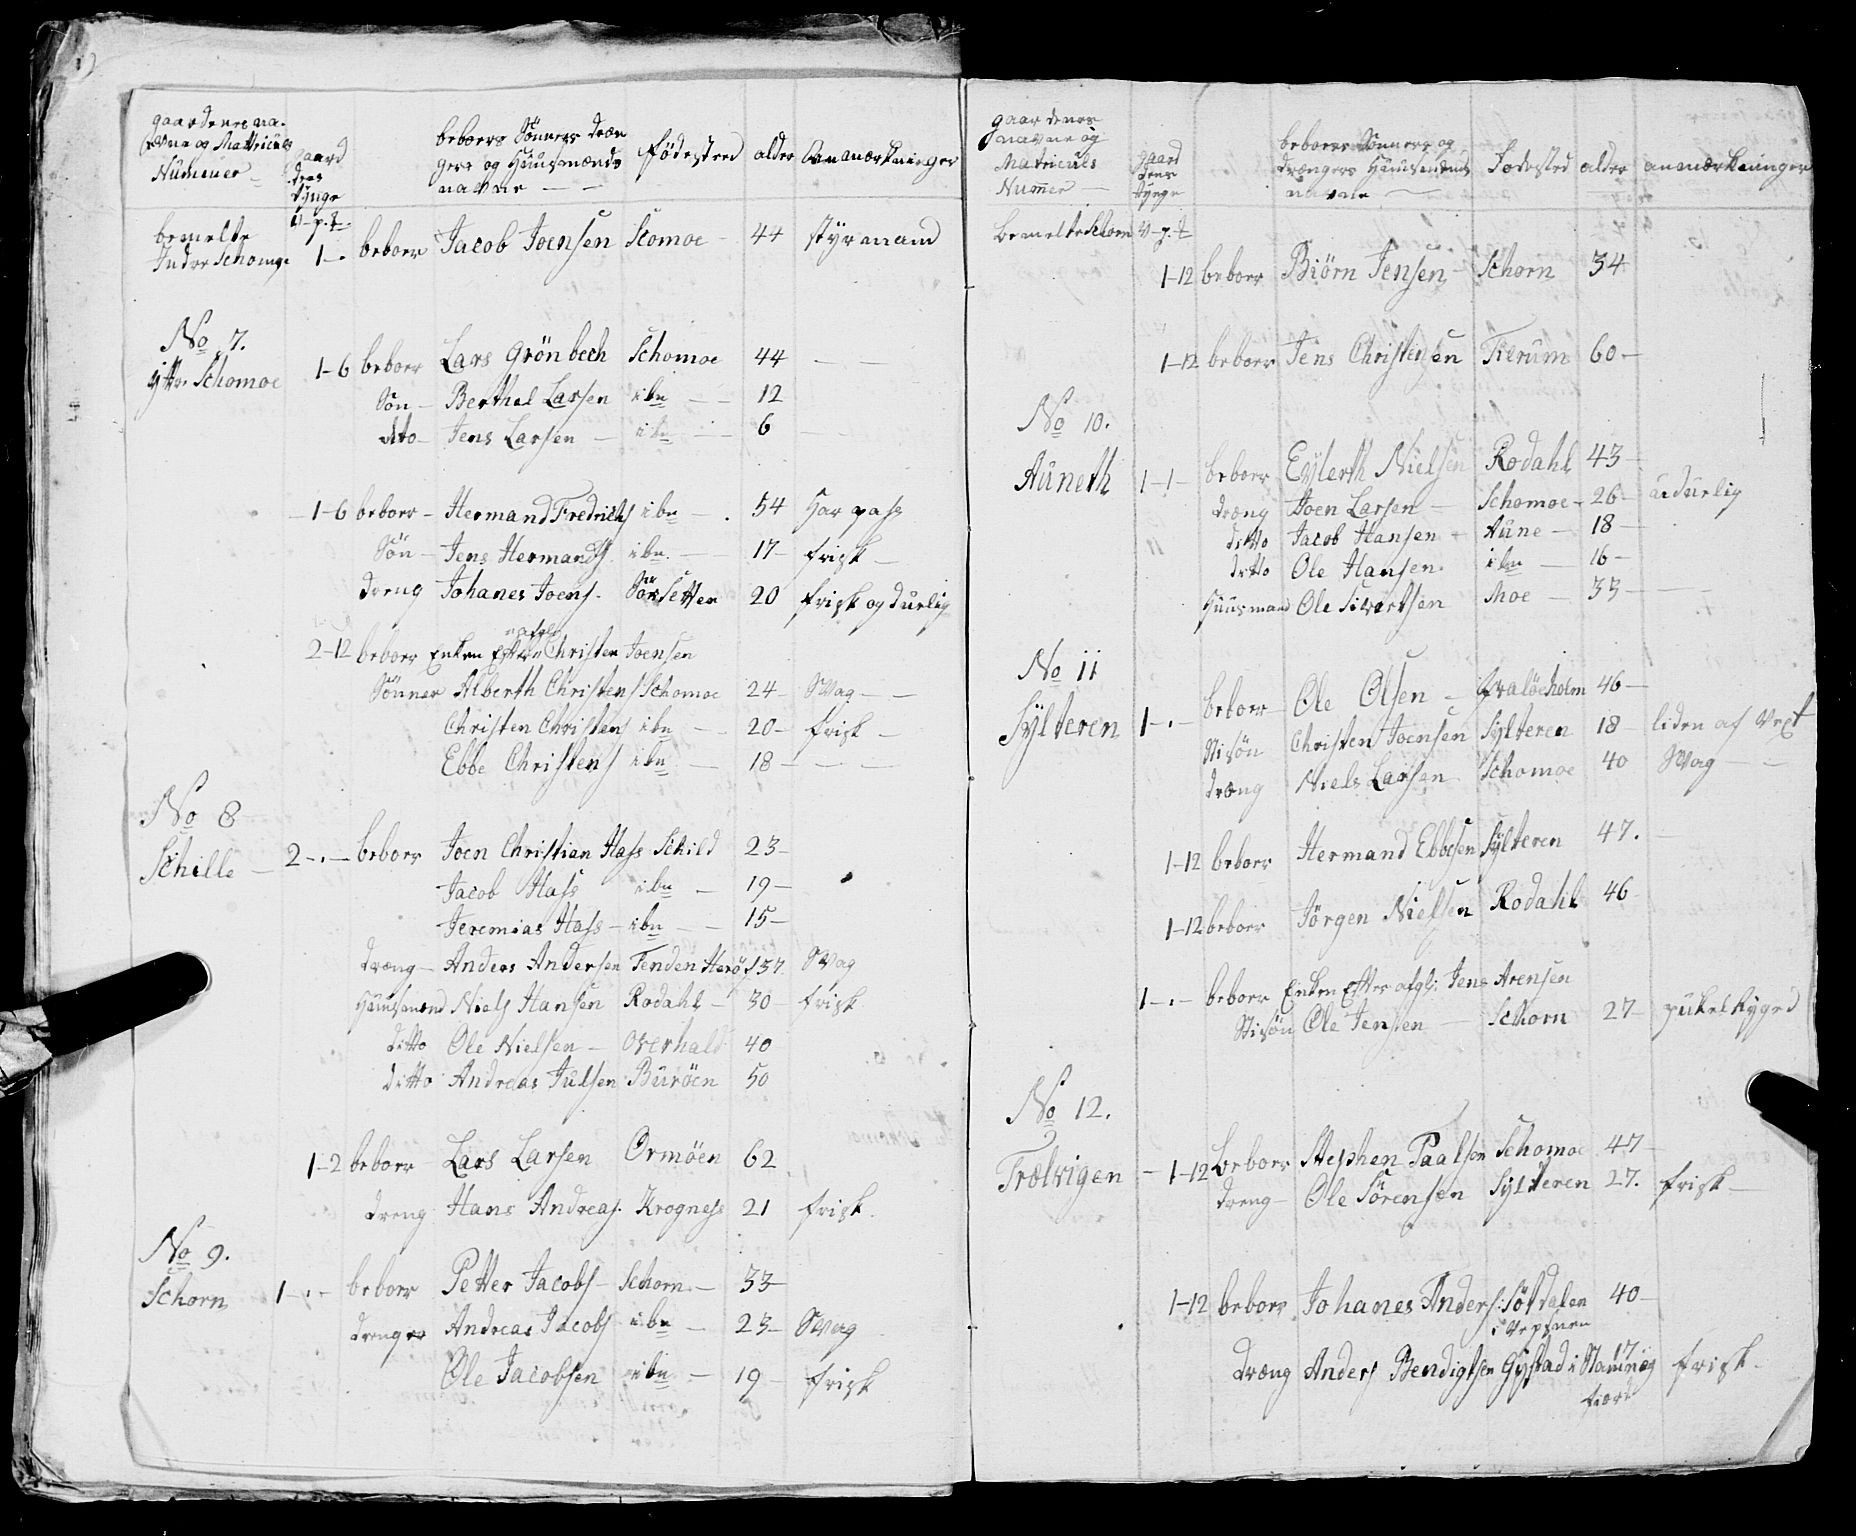 gaardenes na-
vne og Mattriculs
Nummer
gaard
dens
tynge
v-p. #
beboers Sönners dræn
gers og Huusmænds
navne
födested alder Anmærkninger
bemelte
Indre Schomoe 1-. beboer Jacob Joensen Scomoe 44 styrmand
No 7.
ytt. Schomoe 1-6 beboer Lars Grönbech Schomoe 44
Sön Berthel Larsen ibn 12
dto Jens Larsen ibn 6
1-6 beboer Hermand Fredrichs ibn 54 Har pass
Sön Jens Hermands ibn 17 frisk
dreng Johanes Joens. Sörsetter 20 frisk og durlig
2-12 beboer Enken Efter Christen Joensen
Sönner Alberth Christens Schomoe 24 Swag
Christen Christens ibn 20 frisk
Ebbe Christens ibn 18
No 8
Schille 2-.- beboer Joen Christian Hass Schild 23
Jacob Hass ibn 19
Jeremias Hass ibn 15
dræng Anders Andersen Tenden Herö 37 Swag
Huusmand Niels Hansen Rodahl 30 frisk
ditto Ole Nielsen Overhald 40
ditto Andreas Julsen Buröen 50
1-2 beboer Lars Larsen Ormöen 62
dreng Hans Andreas. Krogness 21 frisk.
No 9.
Schorn 1-.- beboer Petter Jacobs Schorn 33
drenger Andreas Jacobs ibn 23 Swag
Ole Jacobsen ibn 19 frisk
gaardenes
navne og
Matriculs
Nummer
gaard
dens
tynge
beboers Sönners og
drængers Huusmends
navne
Fodested alder anmærkninger
bemelte Schorn v-p. #
1-12 beboer Biörn Jensen Schorn 34
1-12 beboer Jens Christensen Tierum 60
No 10.
Auneth 1-1- beboer Eylerth Nielsen Rodahl 43
dræng Joen Larsen Schomoe 26 udurlig
ditto Jacob Hansen Aune 18
ditto Ole Hansen ibn 16
Huusmand Ole Siwertsen Moe 33
No 11
Sylteren 1-.- beboer Ole Olsen Hvalöeholm 46
Stisön Christen Joensen Sylteren 18 liden af Vext
dræng Niels Larsen Schomoe 40 Swag
1-12 beboer Hermand Ebbesen Sylteren 47.
1-12 beboer Jörgen Nielsen Rodahl 46
1-.- beboer Enken Efter afgl: Jens Arensen
Stisön Ole Jensen Schorn 27 pukelrygged
No 12.
Trælvigen 1-12 beboer Stephen Paalsen Schomoe 47
dreng Ole Sörensen Sylteren 27. frisk
1-12 beboer Johanes Anders: Sötdalen 40
i Vepsnen
dræng Anders Bendigtsen Gystad i Stamnes 17 frisk
fiord